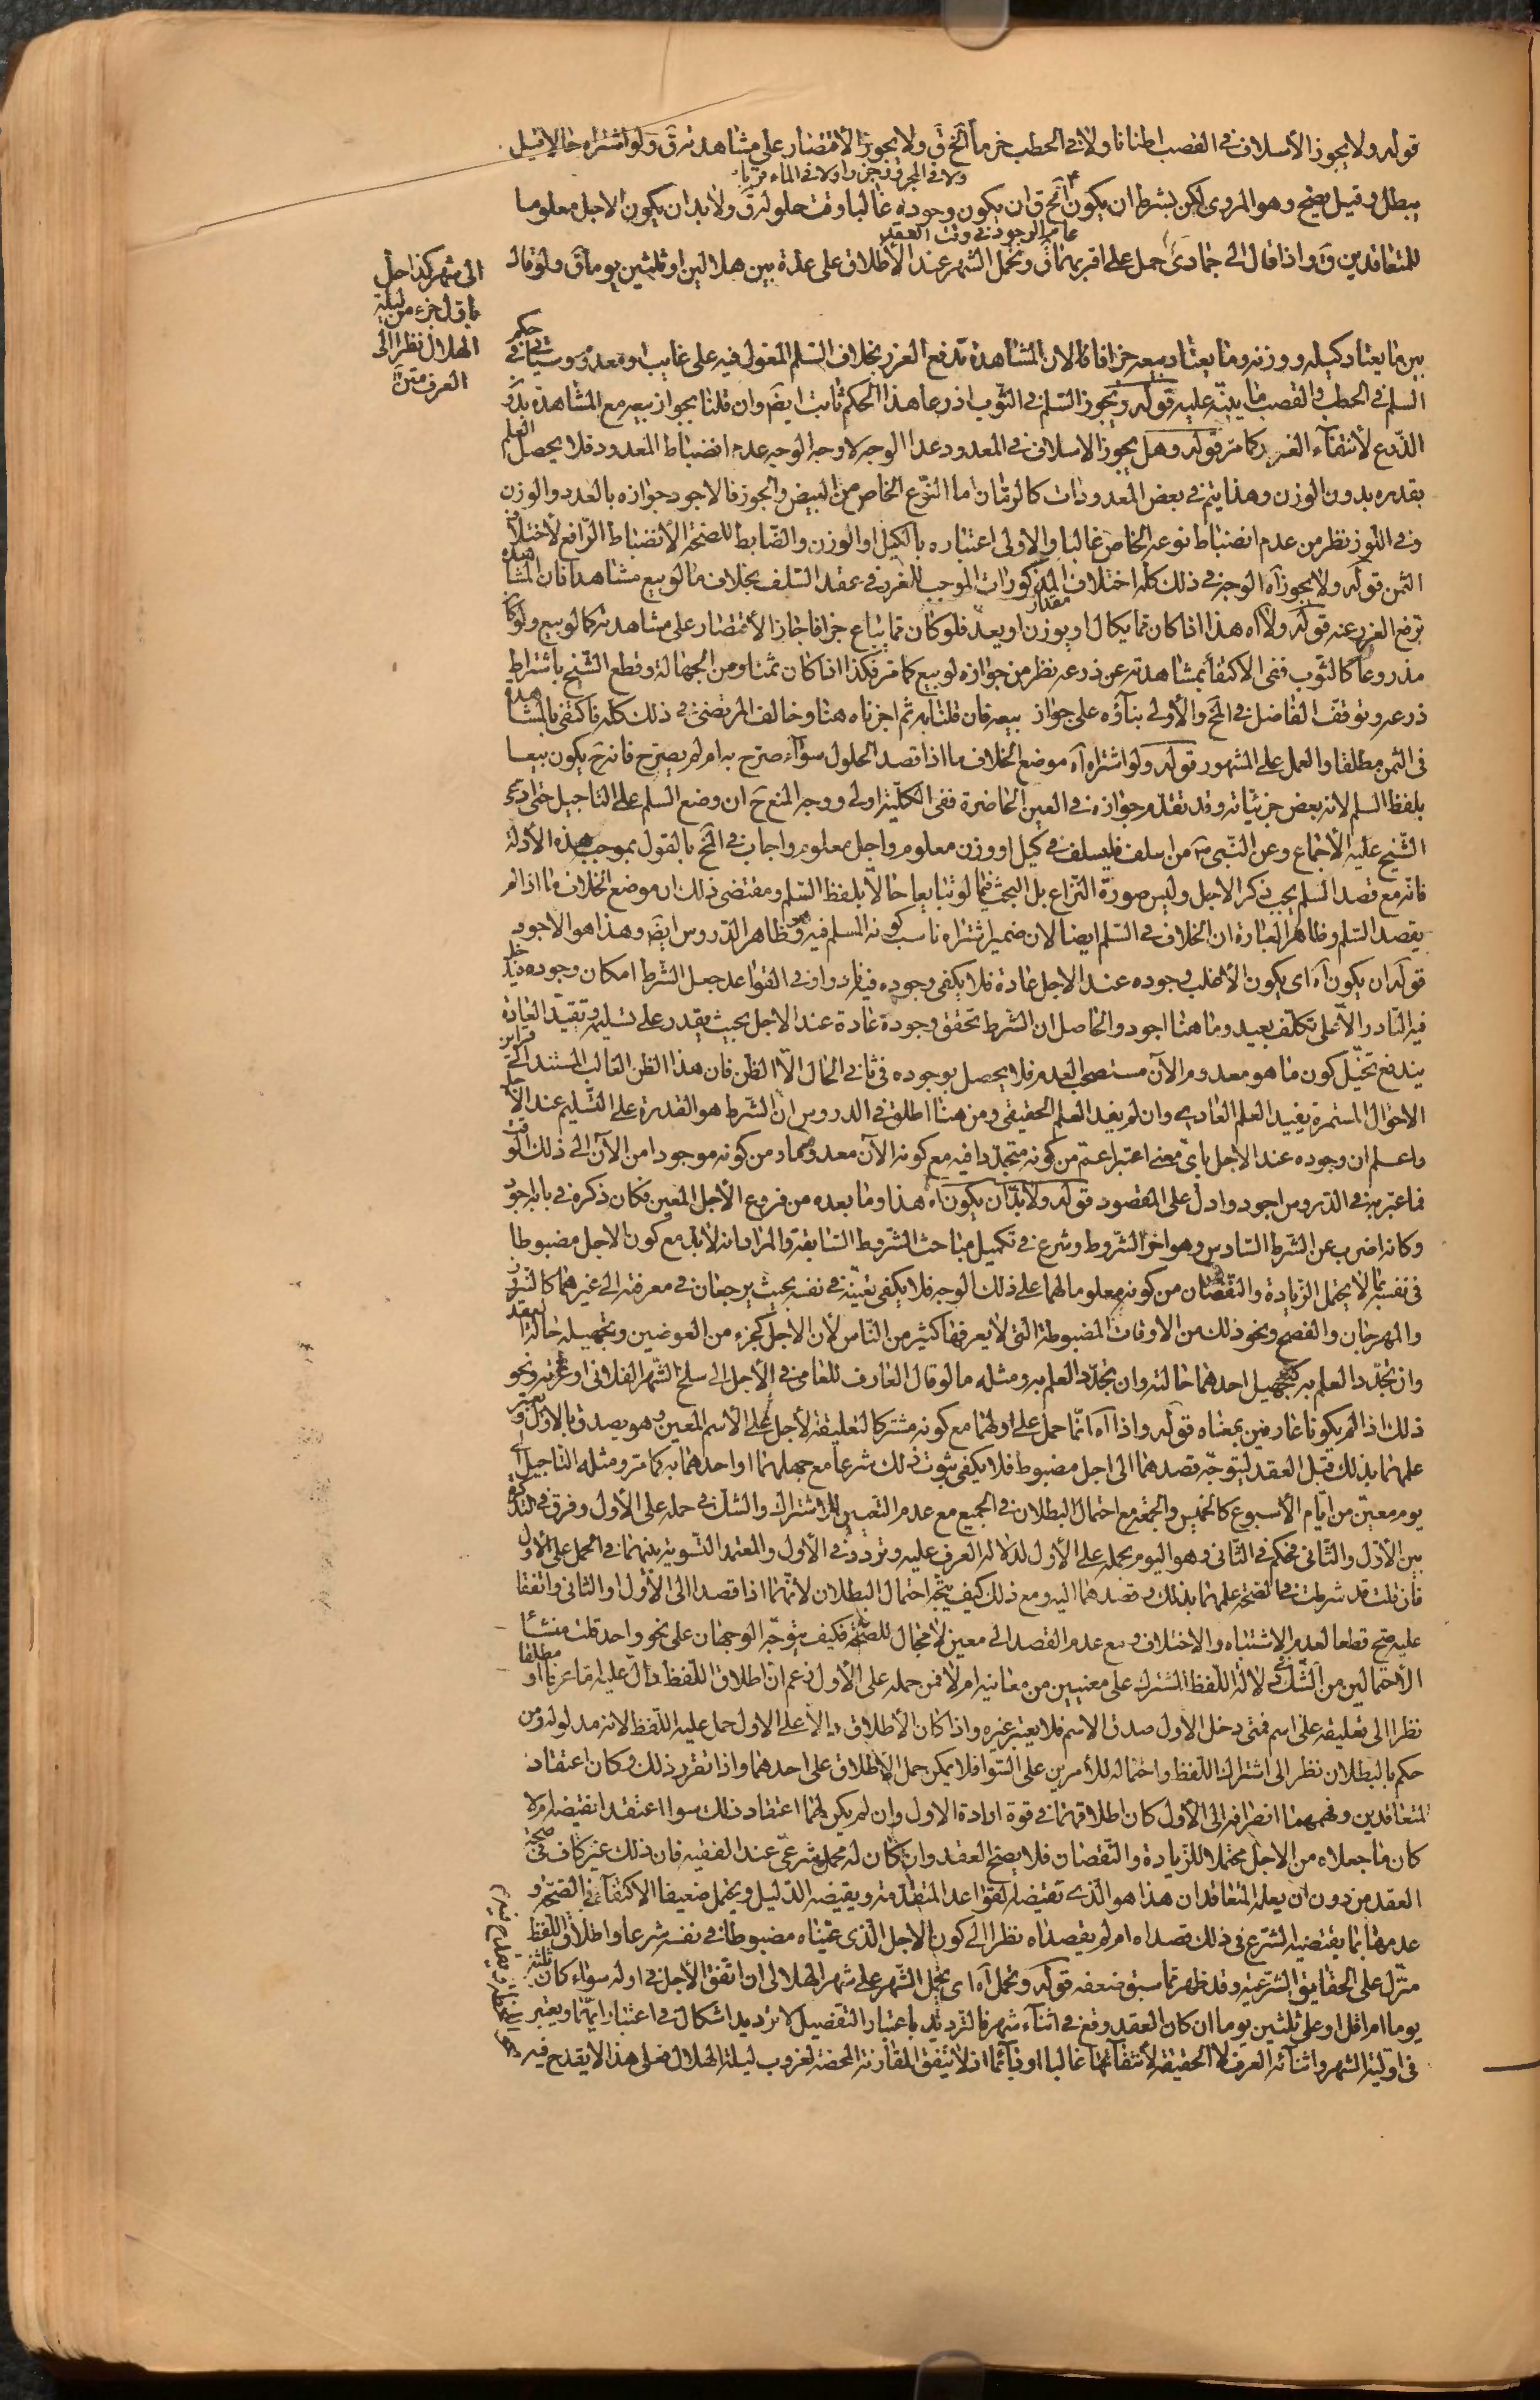 قوله ولا يجوز الأسلاف في القصب اطنانا ولا في الحطب حزما الخ ق ولا يجوز الأقتصار على مشاهدته ق ولو اشتراه حالا قيل
ولا في المجزوز جززا ولا في الماء قربا
يبطل وقيل يصح وهو المروي لكن بشرط ان يكون الخ ق ان يكون وجوده غالبا وقت حلوله ق ولا بد ان يكون الاجل معلوما
عام الوجود في وقت العقد
للمتعاقدين ق واذا قال الى جمادى حمل على اقربهما ق ويحمل الشهر عند الأطلاق على عدة بين هلالين او ثلثين يوما ق ولو قال
الى شهر كذا حل
باول جزء من ليلة
الهلال نظرا الى
العرف متن
بين ما يعتاد كيله ووزنه وما يعتاد بيعه جزافا قال لان المشاهدة تدفع الغرر بخلاف السلم المعول فيه على غايب او معدوم وسياتي في حكم
السلم في الحطب والقصب ما ينبه عليه قوله ويجوز السلم في الثوب اذرعا هذا الحكم ثابت ايضا وان قلنا بجواز بيعه مع المشاهدة بدون
الذرع لأنتفاء الغرر كما مر قوله وهل يجوز الاسلاف في المعدود عددا الوجه لا وجه الوجه عدم انضباط المعدود فلا يحصل العلم
بقدره بدون الوزن وهذا يتم في بعض المعدودات كالرمان اما النوع الخاص من البيض والجوز فالاجود جوازه بالعدد والوزن
وفي اللوز نظر من عدم انضباط نوعه الخاص غالبا والاولى اعتباره بالكيل او الوزن والضابط للصحة الأنضباط الرافع لأختلاف
الثمن قوله ولا يجوز اه الوجه في ذلك كله اختلاف المذكورات الموجب للغرر في عقد السلف بخلاف ما لو بيع مشاهدا فان المشاهدة
ترفع الغرر عنه قوله ولا اه هذا اذا كان مما يكال او يوزن او يعد فلو كان مما يباع جزافا جاز الأقتصار على مشاهدته كما لو بيع ولو كان
مذروعا كالثوب ففي الاكتفاء بمشاهدته عن ذرعه نظر من جوازه لو بيع كما مر فكذا اذا كان ثمنا ومن الجهالة وقطع الشيخ باشتراط
ذرعه وتوقف الفاضل في الخ والأولى بناؤه على جواز بيعه فان قلنا به ثم اجزناه هنا وخالف المرتضى في ذلك كله فاكتفى بالمشاهدة
في الثمن مطلقا والعمل على المشهور قوله ولو اشتراه اه موضع الخلاف ما اذا قصد الحلول سواء صرح به ام لم يصرح فانه ح يكون بيعا
بلفظ السلم لانه بعض جزئياته وقد تقدم جوازه في العين الحاضرة ففي الكلية اولى ووجه المنع ح ان وضع السلم على التاجيل حتى ادعى
الشيخ عليه الأجماع وعن النبي ص من اسلف فليسلف في كيل او وزن معلوم واجل معلوم واجاب في الخ بالقول بموجب هذه الأدلة
فانه مع قصد السلم يجب ذكر الاجل وليس صورة النزاع بل البحث فيما لو تبايعا حالا بلفظ السلم ومقتضى ذلك ان موضع الخلاف ما اذا لم
يقصد السلم وظاهر العبارة ان الخلاف في السلم ايضا لان ضمير اشتراه ناسب كونه المسلم فيه وهو ظاهر الدروس ايضا وهذا هو الاجود
قوله ان يكون اه اي يكون الأغلب وجوده عند الاجل عادة فلا يكفي وجوده فيه نادرا وفي القواعد جعل الشرط امكان وجوده فيدخل
فيه النادر الا على تكلف بعيد وما هنا اجود والحاصل ان الشرط تحقق وجوده عادة عند الاجل بحيث يقدر على تسليمه وتقيد العادة
يندفع تخيل كون ما هو معدوم الآن مستصحب العدم فلا يحصل بوجوده في ثاني الحال الا الظن فان هذا الظن الغالب المستند الى قراين
الاحوال المستمرة يفيد العلم العادي وان لم يفد العلم الحقيقي ومن هنا اطلق في الدروس ان الشرط هو القدرة على التسليم عند الأجل
واعلم ان وجوده عند الاجل باي معنى اعتبر اعم من كونه متجددا فيه مع كونه الآن معدوما ومن كونه موجودا من الآن الى ذلك الوقت
فما عبر به في الدروس اجود وادل على المقصود قوله ولا بد ان يكون اه هذا وما بعده من فروع الأجل المعين فكان ذكره في بابه اجود
وكانه اضرب عن الشرط السادس وهو اخر الشروط وشرع في تكميل مباحث الشروط السابقة والمراد انه لا بد مع كون الاجل مضبوطا
في نفسه بما لا يحتمل الزيادة والنقصان من كونه معلوما لهما على ذلك الوجه فلا يكفي تعينه في نفسه بحيث يرجعان في معرفته الى غيرهما كالنيروز
والمهرجان والفصح ونحو ذلك من الاوقات المضبوطة التي لا يعرفها كثير من الناس لأن الاجل كجزء من العوضين وتجهيله حالة العقد
وان تجدد العلم به كتجهيل احدهما حالته وان تجدد العلم به ومثله ما لو قال العارف للعامي في الأجل الى سلخ الشهر الفلاني او غرته ونحو
ذلك اذا لم يكونا عارفين بمعناه قوله واذا اه انما حمل على اولهما مع كونه مشتركا لتعليقه لأجل على الأسم المعين وهو يصدق بالاول ويعتبر
علمهما بذلك قبل العقد ليتوجه قصدهما الى اجل مضبوط فلا يكفي ثبوت ذلك شرعا مع جهلهما او احدهما به كما مر ومثله التاجيل الى
يوم معين من ايام الأسبوع كالخميس والجمعة مع احتمال البطلان في الجميع مع عدم التعيين للاشتراك والشك في حمله على الأول وفرق في التذكرة
بين الأول والثاني فحكم في الثاني وهو اليوم بحمله على الأول لدلالة العرف عليه وتردد في الأول والمعتمد التسوية بينهما في الحمل على الأول
فان قلت قد شرطت في الصحة علمهما بذلك وقصدهما اليه ومع ذلك كيف يتجه احتمال البطلان لأنهما اذا قصدا الى الأول او الثاني واتفقا
عليه صح قطعا لعدم الاشتباه والاختلاف ومع عدم القصد الى معين لا مجال للصحة فكيف يتوجه الوجهان على نحو واحد قلت منشأ
الأحتمالين من الشك في دلالة اللفظ المشترك على معنيين من معانيه ام لا فمن حمله على الأول زعم ان اطلاق اللفظ دال عليه اما عرفا او مطلقا
نظرا الى تعليقه على اسم فمتى دخل الأول صدق الاسم فلا يعتبر غيره واذا كان الأطلاق دالا على الاول حمل عليه اللفظ لانه مدلوله ومن
حكم بالبطلان نظر الى اشتراك اللفظ واحتماله للأمرين على السوا فلا يمكن حمل الاطلاق على احدهما واذا تقرر ذلك وكان اعتقاد
المتعاقدين وفهمهما انصرافه الى الأول كان اطلاقهما في قوة ارادة الاول وان لم يكن لهما اعتقاد ذلك سوا اعتقدا نقيضه ام لا
كان ما جعلاه من الاجل محتملا للزيادة والنقصان فلا يصح العقد وان كان له محمل شرعي عند الفقيه فان ذلك غير كاف في صحة
العقد من دون ان يعلمه المتعاقدان هذا هو الذي تقتضيه القواعد المتقدمة ويقتضيه الدليل ويحتمل ضعيفا الاكتفاء في الصحة و
عدمها بما يقتضيه الشرع في ذلك قصداه ام لم يقصداه نظرا الى كون الاجل الذي عيناه مضبوطا في نفسه شرعا واطلاق اللفظ
منزل على الحقايق الشرعية وقد ظهر مما سبق ضعفه قوله ويحمل اه اي يحمل الشهر على شهر الهلالي ان اتفق الأجل في اوله سواء كان ثلثين
يوما ام اقل او على ثلثين يوما ان كان العقد وقع في اثناء شهر فالترديد باعتبار التفصيل لا ترديد اشكال في اعتبار ايهما ويعتبر
في اولية الشهر واثنائه العرف لا الحقيقة لأنتفائهما غالبا او دائما اذ لا تتفق المقارنة المحضة لغروب ليلة الهلال فعلى هذا لا يقدح فيه